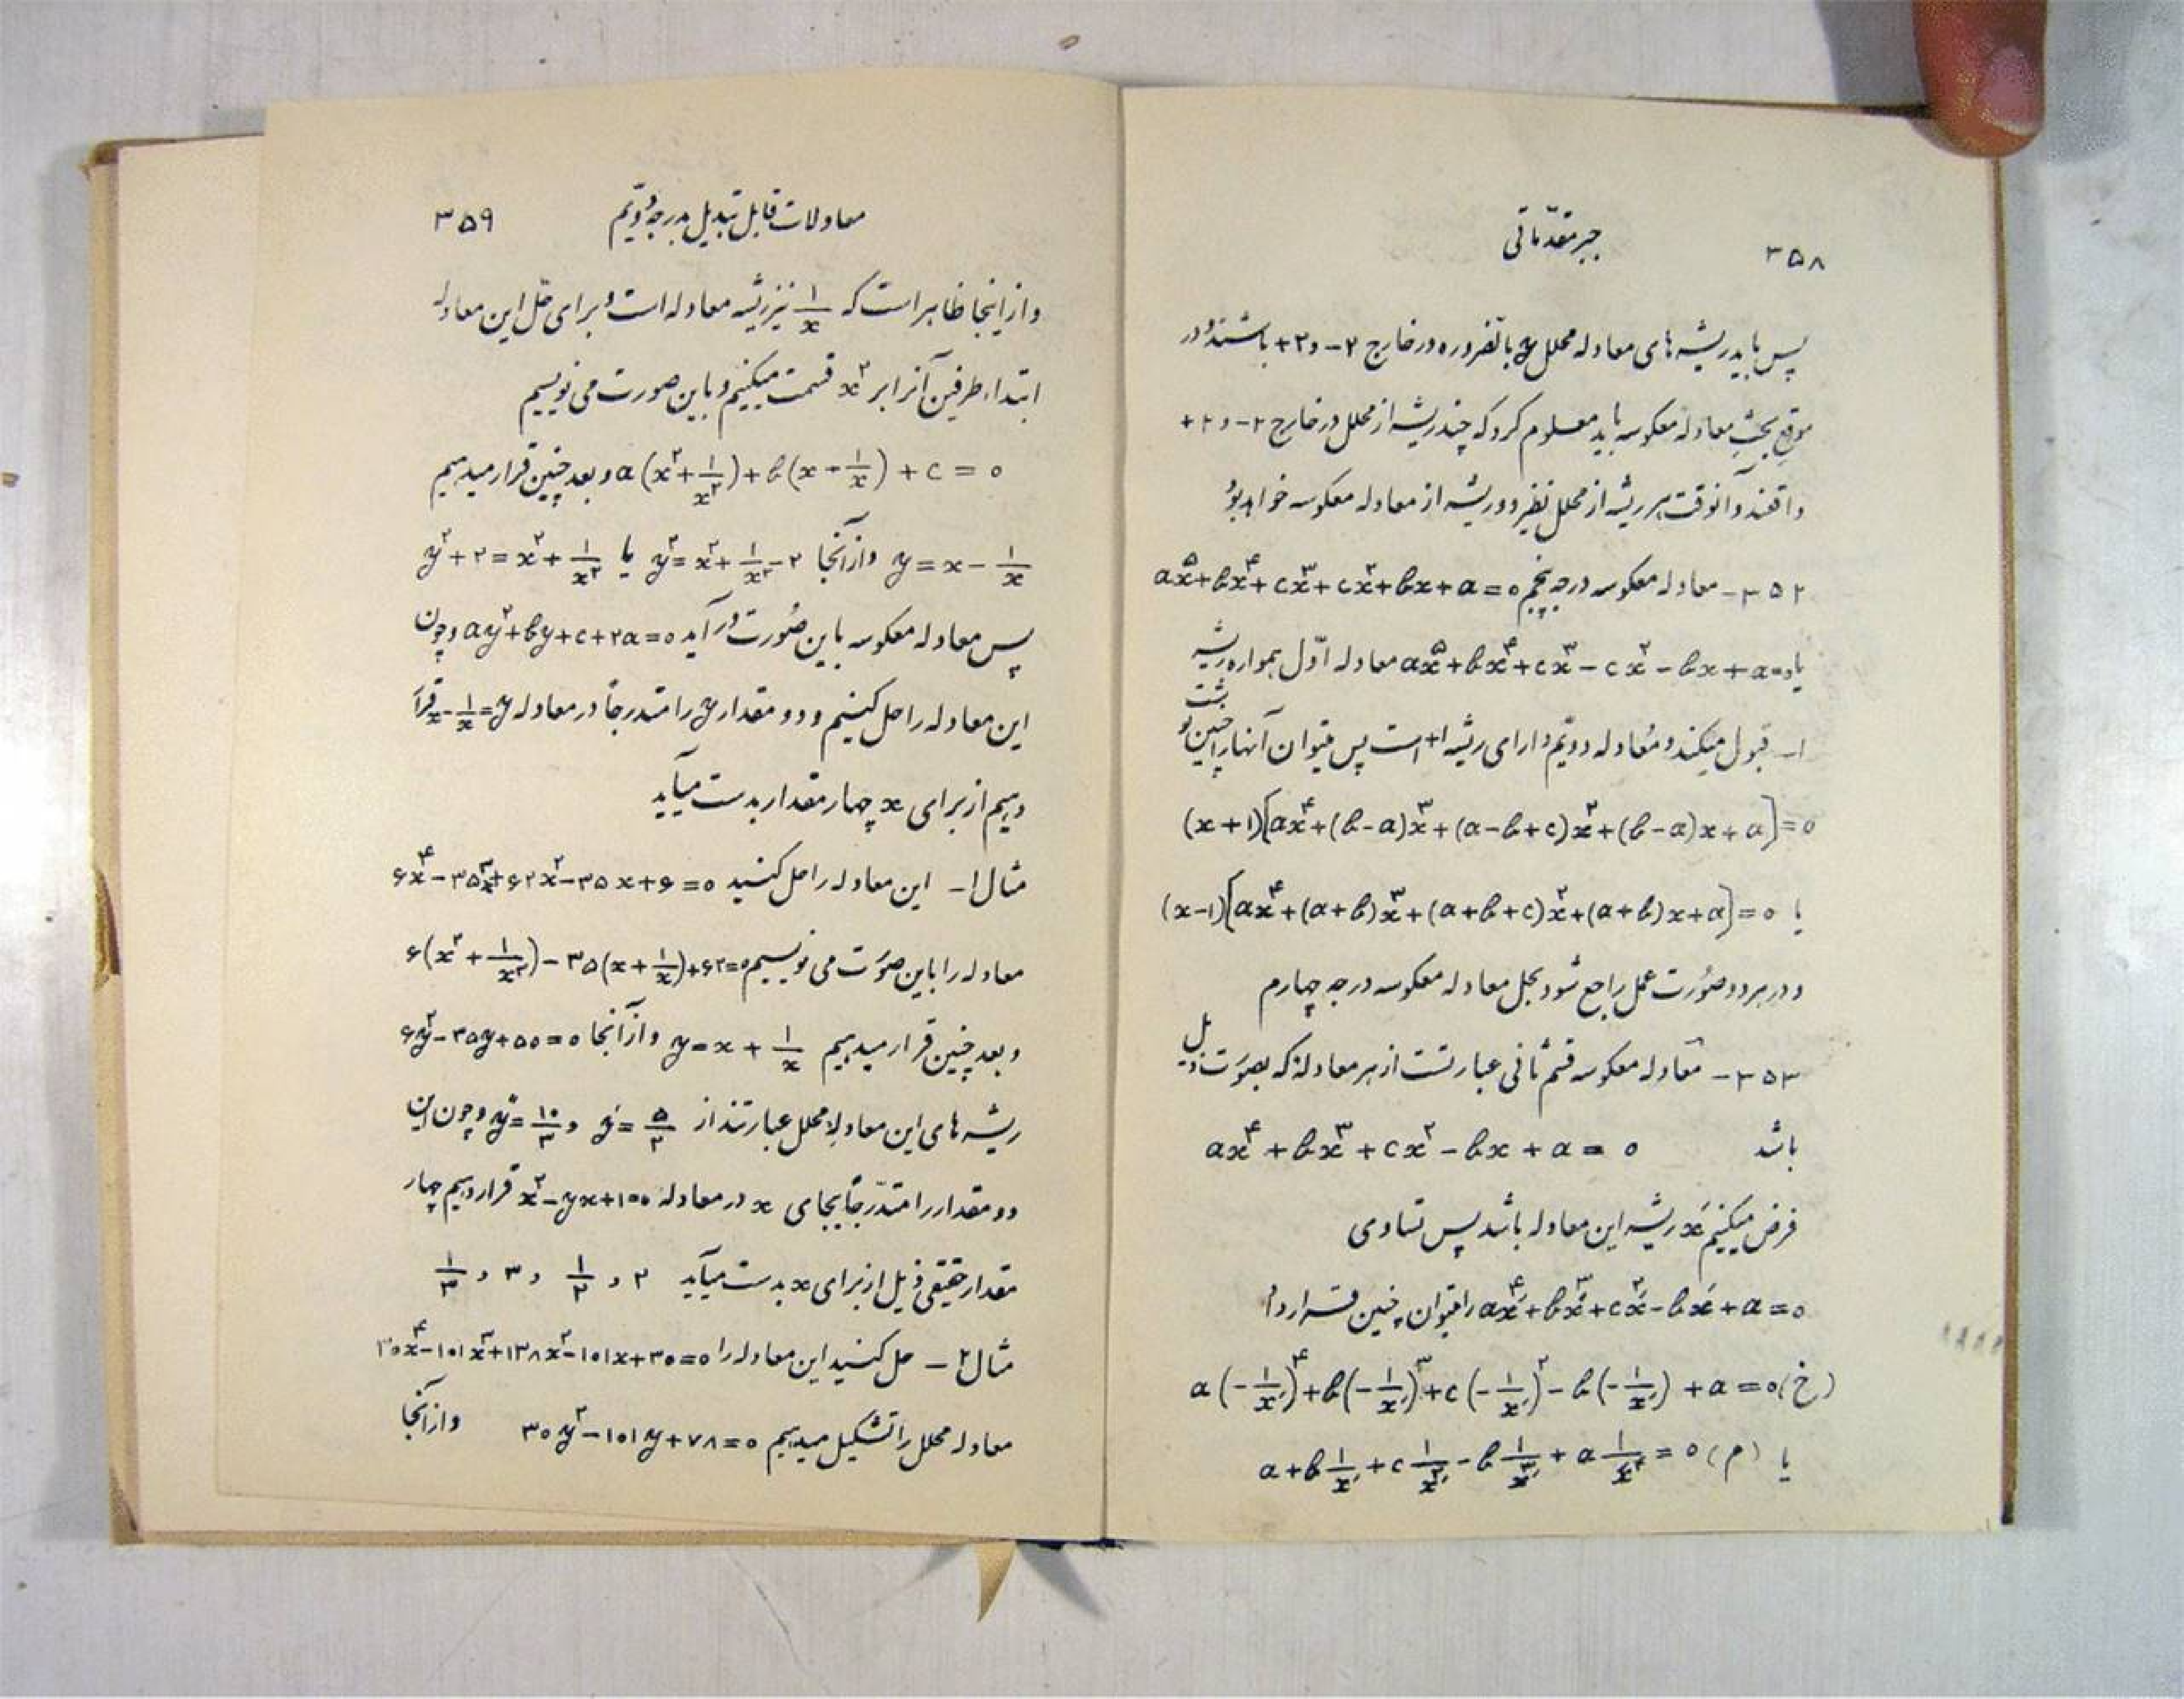 ۳۵۸ جبر مقدّماتی
پس باید ریشه‌های معادله محلل y بالضروره در خارج ۲− و ۲+ باشند و در
موقع بحث معادله معکوسه باید معلوم کرد که چند ریشه از محلل در خارج ۲− و ۲+
واقعند و آنوقت هر ریشه از محلل نظیر دو ریشه از معادله معکوسه خواهد بود
۳۵۲ – معادله معکوسه درجه پنجم ax⁵+bx⁴+cx³+cx²+bx+a=۰
یا ax⁵+bx⁴+cx³−cx²−bx+a=۰ معادله اوّل همواره ریشه
۱− قبول میکند و معادله دویّم دارای ریشه ۱+ است پس میتوان آنها را چنین نوشت
(x+۱)[ax⁴+(b−a)x³+(a−b+c)x²+(b−a)x+a]=۰
یا (x−۱)[ax⁴+(a+b)x³+(a+b+c)x²+(a+b)x+a]=۰
و در هر دو صورت عمل راجع شود بحل معادله معکوسه درجه چهارم
۳۵۳ – معادله معکوسه قسم ثانی عبارتست از هر معادلهٔ که بصورت ذیل
باشد ax⁴+bx³+cx²−bx+a=۰
فرض میکنیم x′ ریشه این معادله باشد پس تساوی
ax′⁴+bx′³+cx′²−bx′+a=۰ را میتوان چنین قرار داد
(خ) a(−۱/x′)⁴+b(−۱/x′)³+c(−۱/x′)²−b(−۱/x′)+a=۰
یا (م) a+b ۱/x′+c ۱/x′²−b ۱/x′³+a ۱/x′⁴=۰
معادلات قابل تبدیل بدرجه دویّم ۳۵۹
و از اینجا ظاهر است که ۱/x نیز ریشه معادله است و برای حل این معادله
ابتداء طرفین آنرا بر x² قسمت میکنیم و باین صورت می نویسیم
a(x²+۱/x²)+b(x−۱/x)+c=۰ و بعد چنین قرار میدهیم
y=x−۱/x و از آنجا y²=x²+۱/x²−۲ یا y²+۲=x²+۱/x²
پس معادله معکوسه باین صورت در آید ay²+by+c+۲a=۰ و چون
این معادله را حل کنیم و دو مقدار y را متدرجاً در معادله y=x−۱/x قرار
دهیم از برای x چهار مقدار بدست میآید
مثال ۱– این معادله را حل کنید ۶x⁴−۳۵x³+۶۲x²−۳۵x+۶=۰
معادله را باین صورت می نویسیم ۶(x²+۱/x²)−۳۵(x+۱/x)+۶۲=۰
و بعد چنین قرار میدهیم y=x+۱/x و از آنجا ۶y²−۳۵y+۵۰=۰
ریشه‌های این معادله محلل عبارتند از y′=۵/۲ و y″=۱۰/۳ و چون این
دو مقدار را متدرّجاً بجای x در معادله x²−yx+۱=۰ قرار دهیم چهار
مقدار حقیقی ذیل از برای x بدست میآید ۲ و ۱/۲ و ۳ و ۱/۳
مثال ۲– حل کنید این معادله را ۳۰x⁴−۱۰۱x³+۱۳۸x²−۱۰۱x+۳۰=۰
معادله محلل را تشکیل میدهیم ۳۰y²−۱۰۱y+۷۸=۰ و از آنجا